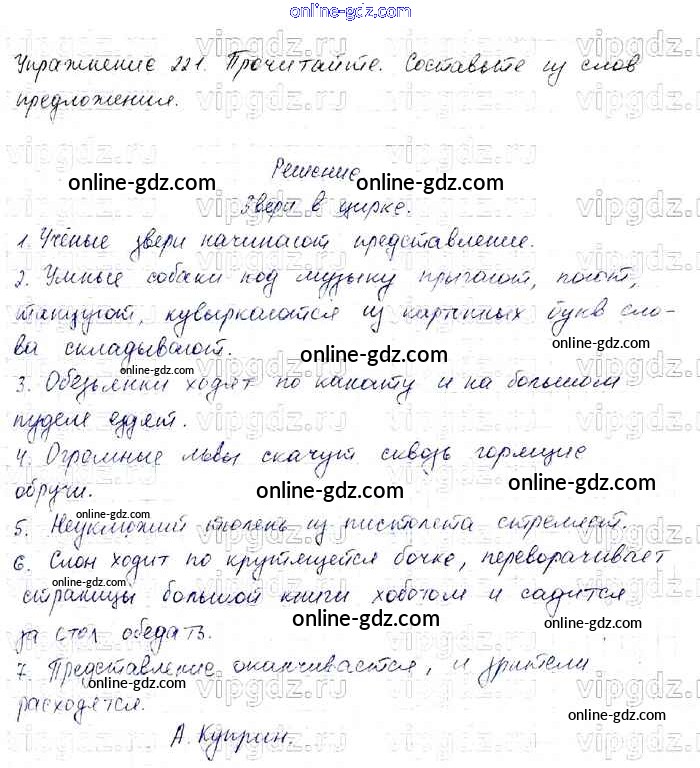 online-gdz.com
Упражнение 221. Прочитайте. Составьте из слов
предложения.
Решение
online-gdz.com online-gdz.com
Звери в цирке.
1. Учёные звери начинают представление.
2. Умные собаки под музыку прыгают, поют,
танцуют, кувыркаются из картинных букв сло-
ва складывают.
online-gdz.com
online-gdz.com
3. Обезьянки ходят по канату и на большом
пуделе ездят.
4. Огромные львы скачут сквозь горящие
обручи.
online-gdz.com online-gdz.com
online-gdz.com
5. Неуклюжий тюлень из пистолета стреляет.
6. Слон ходит по крутящейся бочке, переворачивает
online-gdz.com
страницы большой книги хоботом и садится
за стол обедать.
online-gdz.com
7. Представление оканчивается, и зрители
online-gdz.com
расходятся.
online-gdz.com
А. Куприн.
vipgdz.ru